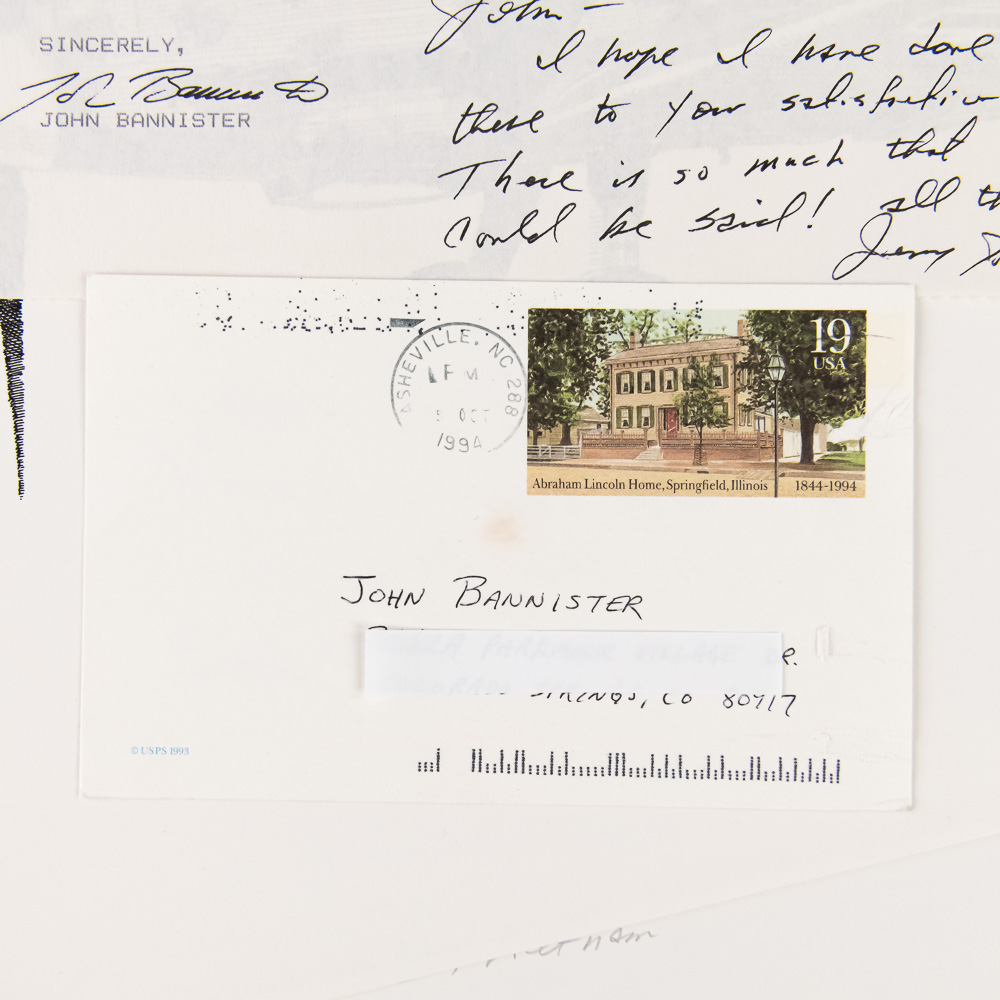 SINCERELY,
John Bannister
JOHN BANNISTER
John –
I hope I have done
these to your satisfaction
There is so much that
could be said! all th
Jerry
ASHEVILLE, NC 288
PM
5 OCT
1994
19
USA
Abraham Lincoln Home, Springfield, Illinois 1844-1994
JOHN BANNISTER
DR.
SPRINGS, CO 80917
© USPS 1993
Vietnam